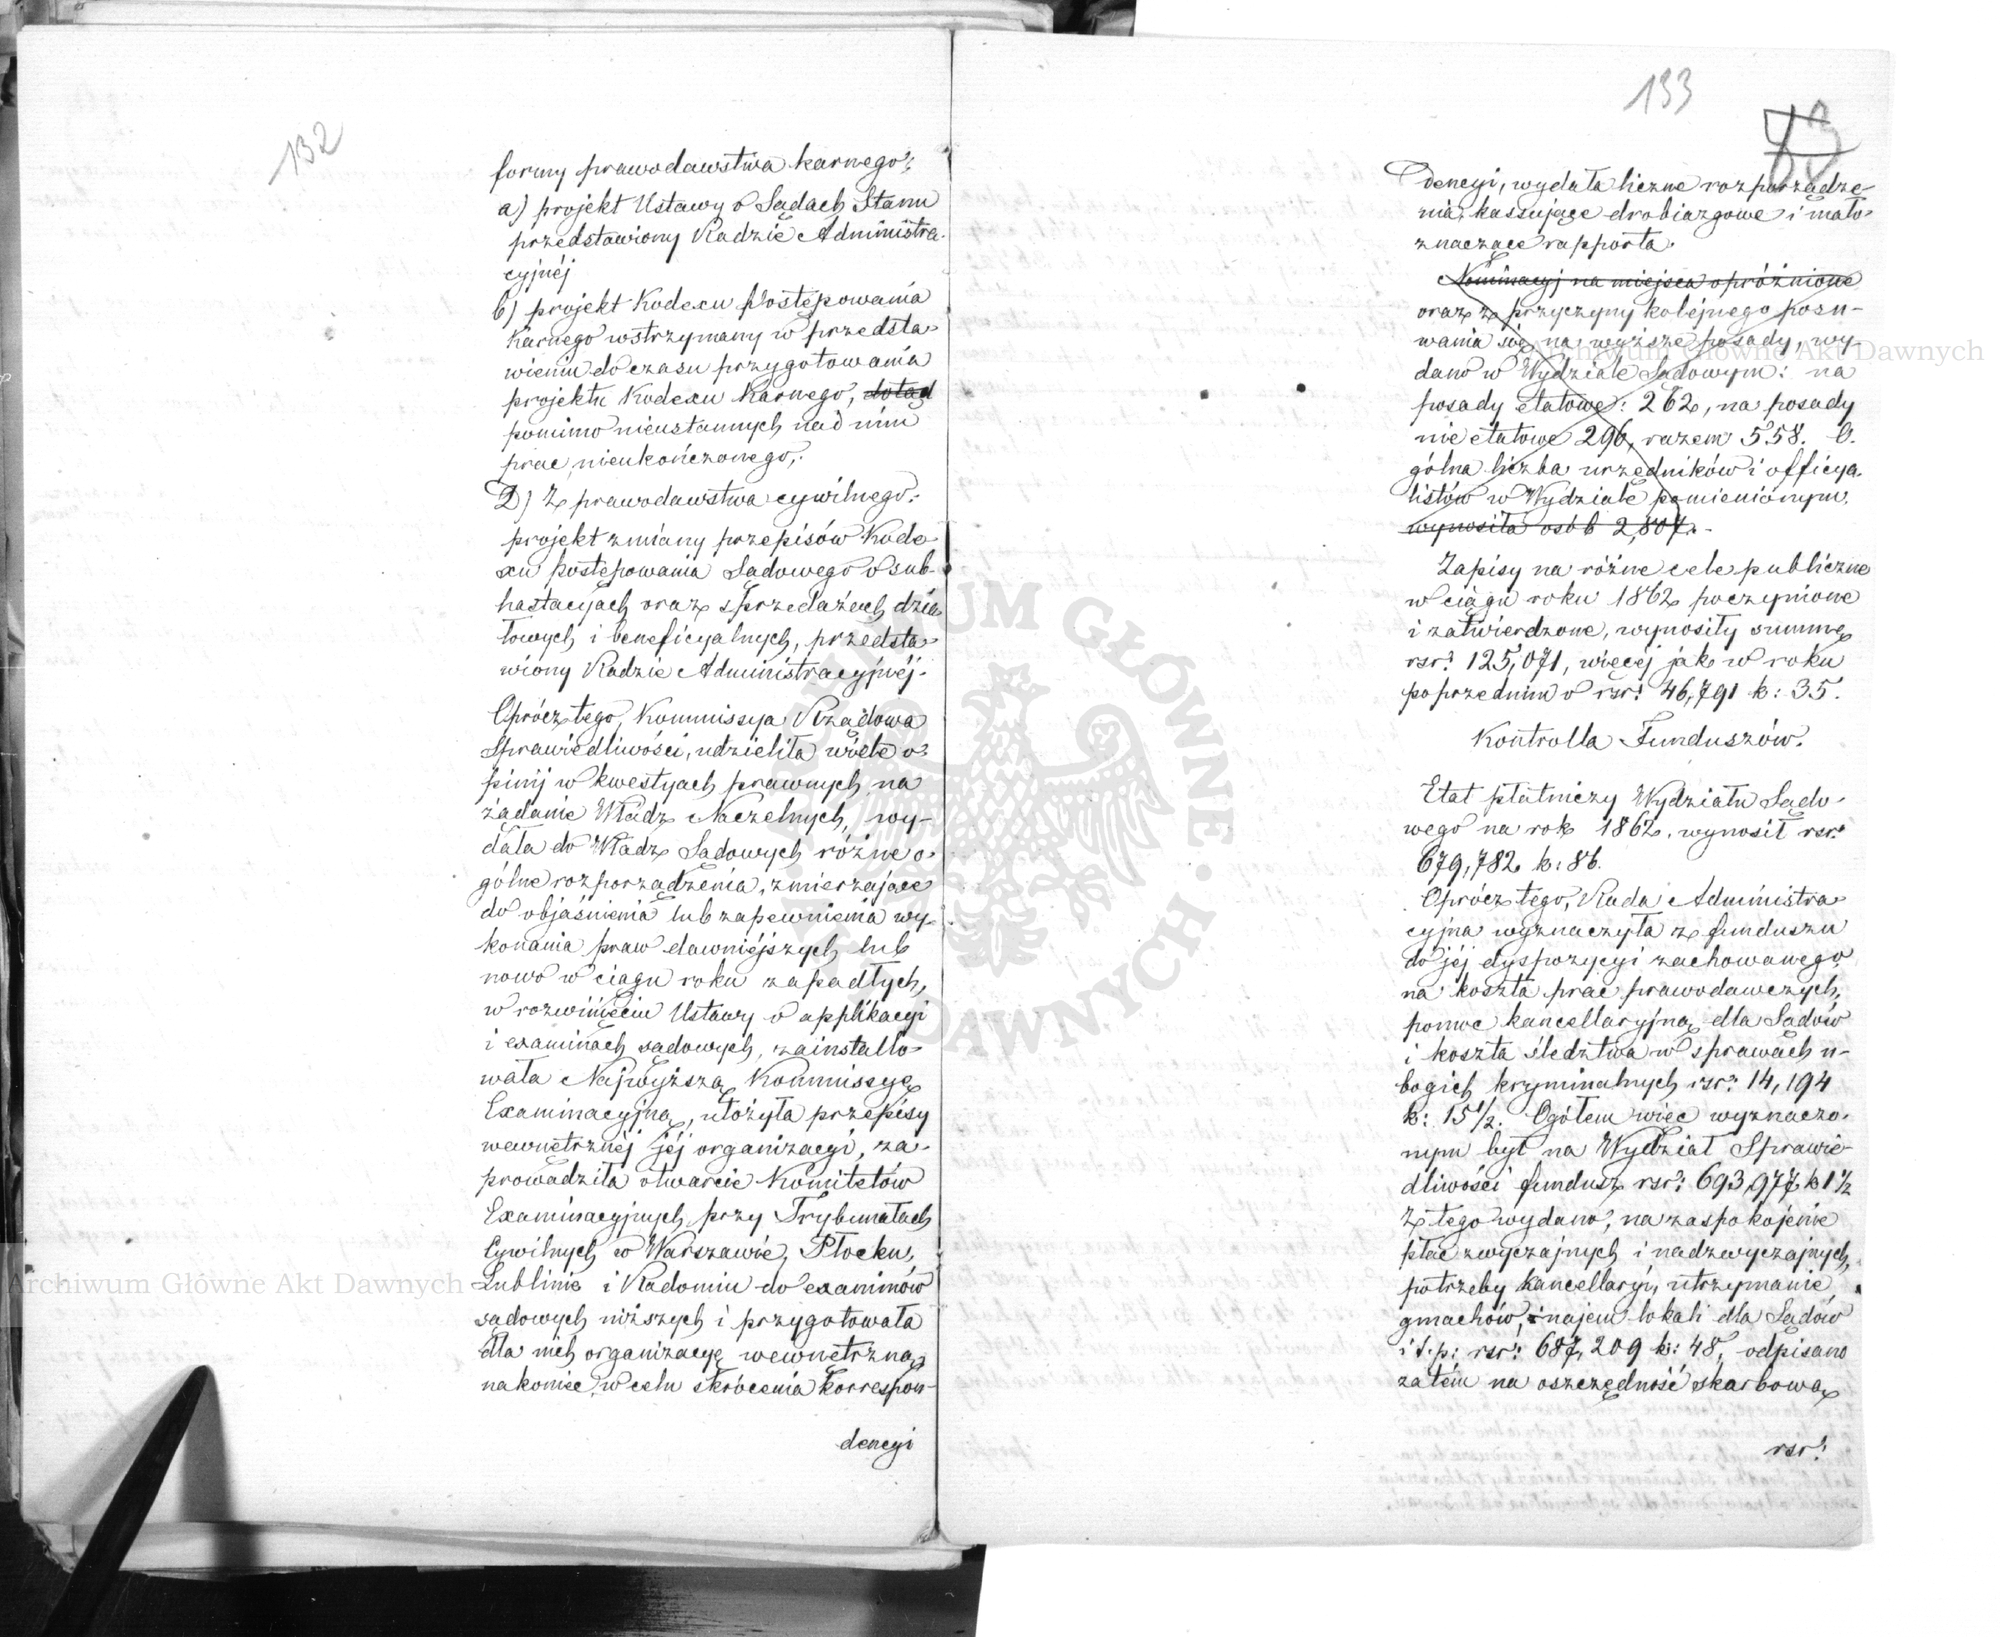 132
formy prawodawstwa karnego:
a) projekt Ustawy o Sądach Stanu
przedstawiony Radzie Administra-
cyjnéj
b) projekt Kodexu Postępowania
Karnego wstrzymany w przedsta-
wieniu do czasu przygotowania
projektu Kodexu Karnego, dotąd
pomimo nieustannych nad nim
prac, nieukończonego,
2) Z prawodawstwa cywilnego:
projekt zmiany przepisów Kode-
xu Postępowania Sądowego o sub-
hastacyjach oraz sprzedażach dzia-
łowych i beneficyalnych, przedsta-
wiony Radzie Administracyjnéj.
Oprócz tego, Kommissya Rządowa
Sprawiedliwości, udzieliła wiele o-
pinij w kwestyach prawnych na
żądanie Władz Naczelnych, wy-
dała do Władz Sądowych różne o-
gólne rozporządzenia, zmierzające
do objaśnienia lub zapewnienia wy-
konania praw dawniéjszych lub
nowo w ciągu roku zapadłych,
w rozwinięciu Ustawy o applikacyi
i examinach sądowych, zainstallo-
wała Najwyższą Kommissyę
Examinacyjną, ułożyła przepisy
wewnętrznéj jéj organizacyi, za-
prowadziła otwarcie Komitetów
Examinacyjnych przy Trybunałach
Cywilnych w Warszawie, Płocku,
Lublinie i Radomiu do examinów
sądowych niższych i przygotowała
dla nich organizacyę wewnętrzną,
nakoniec, w celu skrócenia korrespon-
dencyi
133
83
dencyi, wydała liczne rozporządze-
nia, kassujące drobiazgowe i mało-
znaczące rapporta.
Nominacyj na miejsca opróżnione
oraz z przyczyny koléjnego posu-
wania się na wyższe posady, wy-
dano w Wydziale Sądowym: na
posady etatowe: 262, na posady
nieetatowe 296, razem 558. O-
gólna liczba urzędników i officya-
listów w Wydziale pomienionym
wynosiła osób 2,807.
Zapisy na różne cele publiczne
w ciągu roku 1862 poczynione
i zatwierdzone, wynosiły summę
rsr: 125,071, więcéj jak w roku
poprzednim o rsr: 46,791 k: 35.
Kontrolla Funduszów.
Etat płatniczy Wydziału Sądo-
wego na rok 1862, wynosił rsr:
679,782 k: 86.
Oprócz tego, Rada Administra-
cyjna wyznaczyła z funduszu
do jéj dyspozycyi zachowanego
na koszta prac prawodawczych,
pomoc kancellaryjną dla Sądów
i koszta śledztwa w sprawach u-
bogich kryminalnych rsr: 14,194
k: 15½. Ogółem więc wyznaczo-
nym był na Wydział Sprawie-
dliwości fundusz rsr: 693,977 k 1½
Z tego wydano, na zaspokojenie
płac zwyczajnych i nadzwyczajnych,
potrzeby kancellaryi, utrzymanie
gmachów, najem lokali dla Sądów
i t. p: rsr: 687,209 k: 48, odpisano
zatém na oszczędność skarbową
rsr:
Archiwum Główne Akt Dawnych
Archiwum Główne Akt Dawnych
ARCHIWUM GŁÓWNE AKT DAWNYCH